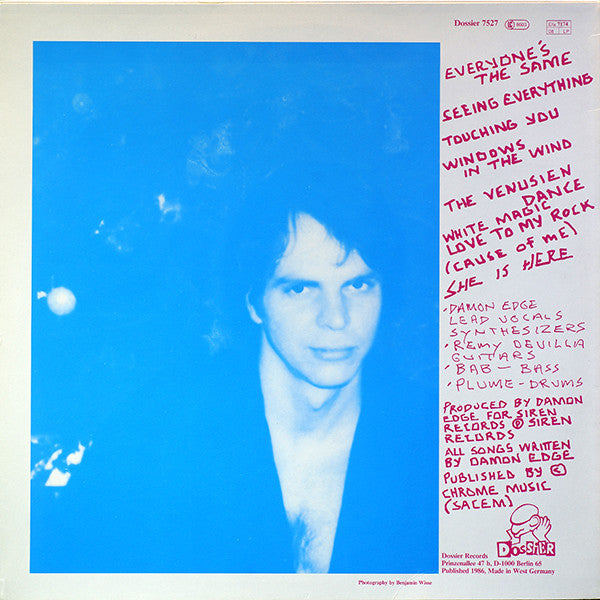 Dossier 7527
EVERYONE'S
THE SAME
SEEING EVERYTHING
TOUCHING YOU
WINDOWS
IN THE WIND
THE VENUSIEN
DANCE
WHITE MAGIC
LOVE TO MY ROCK
(CAUSE OF ME)
SHE IS HERE
·DAMON EDGE
LEAD VOCALS
SYNTHESIZERS
·REMY DEVILLIA
GUITARS
·BAB-BASS
·PLUME-DRUMS
PRODUCED BY DAMON
EDGE FOR SIREN
RECORDS ℗ SIREN
RECORDS
ALL SONGS WRITTEN
BY DAMON EDGE
PUBLISHED BY ©
CHROME MUSIC
(SACEM)
DOSSIER
Dossier Records
Prinzenallee 47 b, D-1000 Berlin 65
Published 1986, Made in West Germany
Photography by Benjamin Wisse